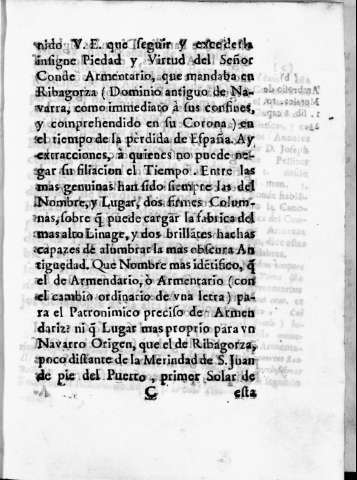 nido V. E. que seguir y exceder la
insigne Piedad y Virtud del Señor
Conde Armentario, que mandaba en
Ribagorza (Dominio antiguo de Na-
varra, como immediato à sus confines,
y comprehendido en su Corona) en
el tiempo de la perdida de España. Ay
extracciones, à quienes no puede ne-
gar su filiacion el Tiempo. Entre las
mas genuinas han sido siempre las del
Nombre, y Lugar, dos firmes Colum-
nas, sobre q̃ puede cargar la fabrica del
mas alto Linage, y dos brillãtes hachas
capazes dè alumbrar la mas obscura An
tiguedad. Que Nombre mas idẽtifico, q̃
el de Armendario, ò Armentario (con
el cambio ordinario de vna letra) pa-
ra el Patronimico preciso de Armen
dariz? ni q̃ Lugar mas proprio para vn
Navarro Origen, que el de Ribagorza,
poco distante de la Merindad de S. Juan
de pie del Puerto, primer Solar de
C esta